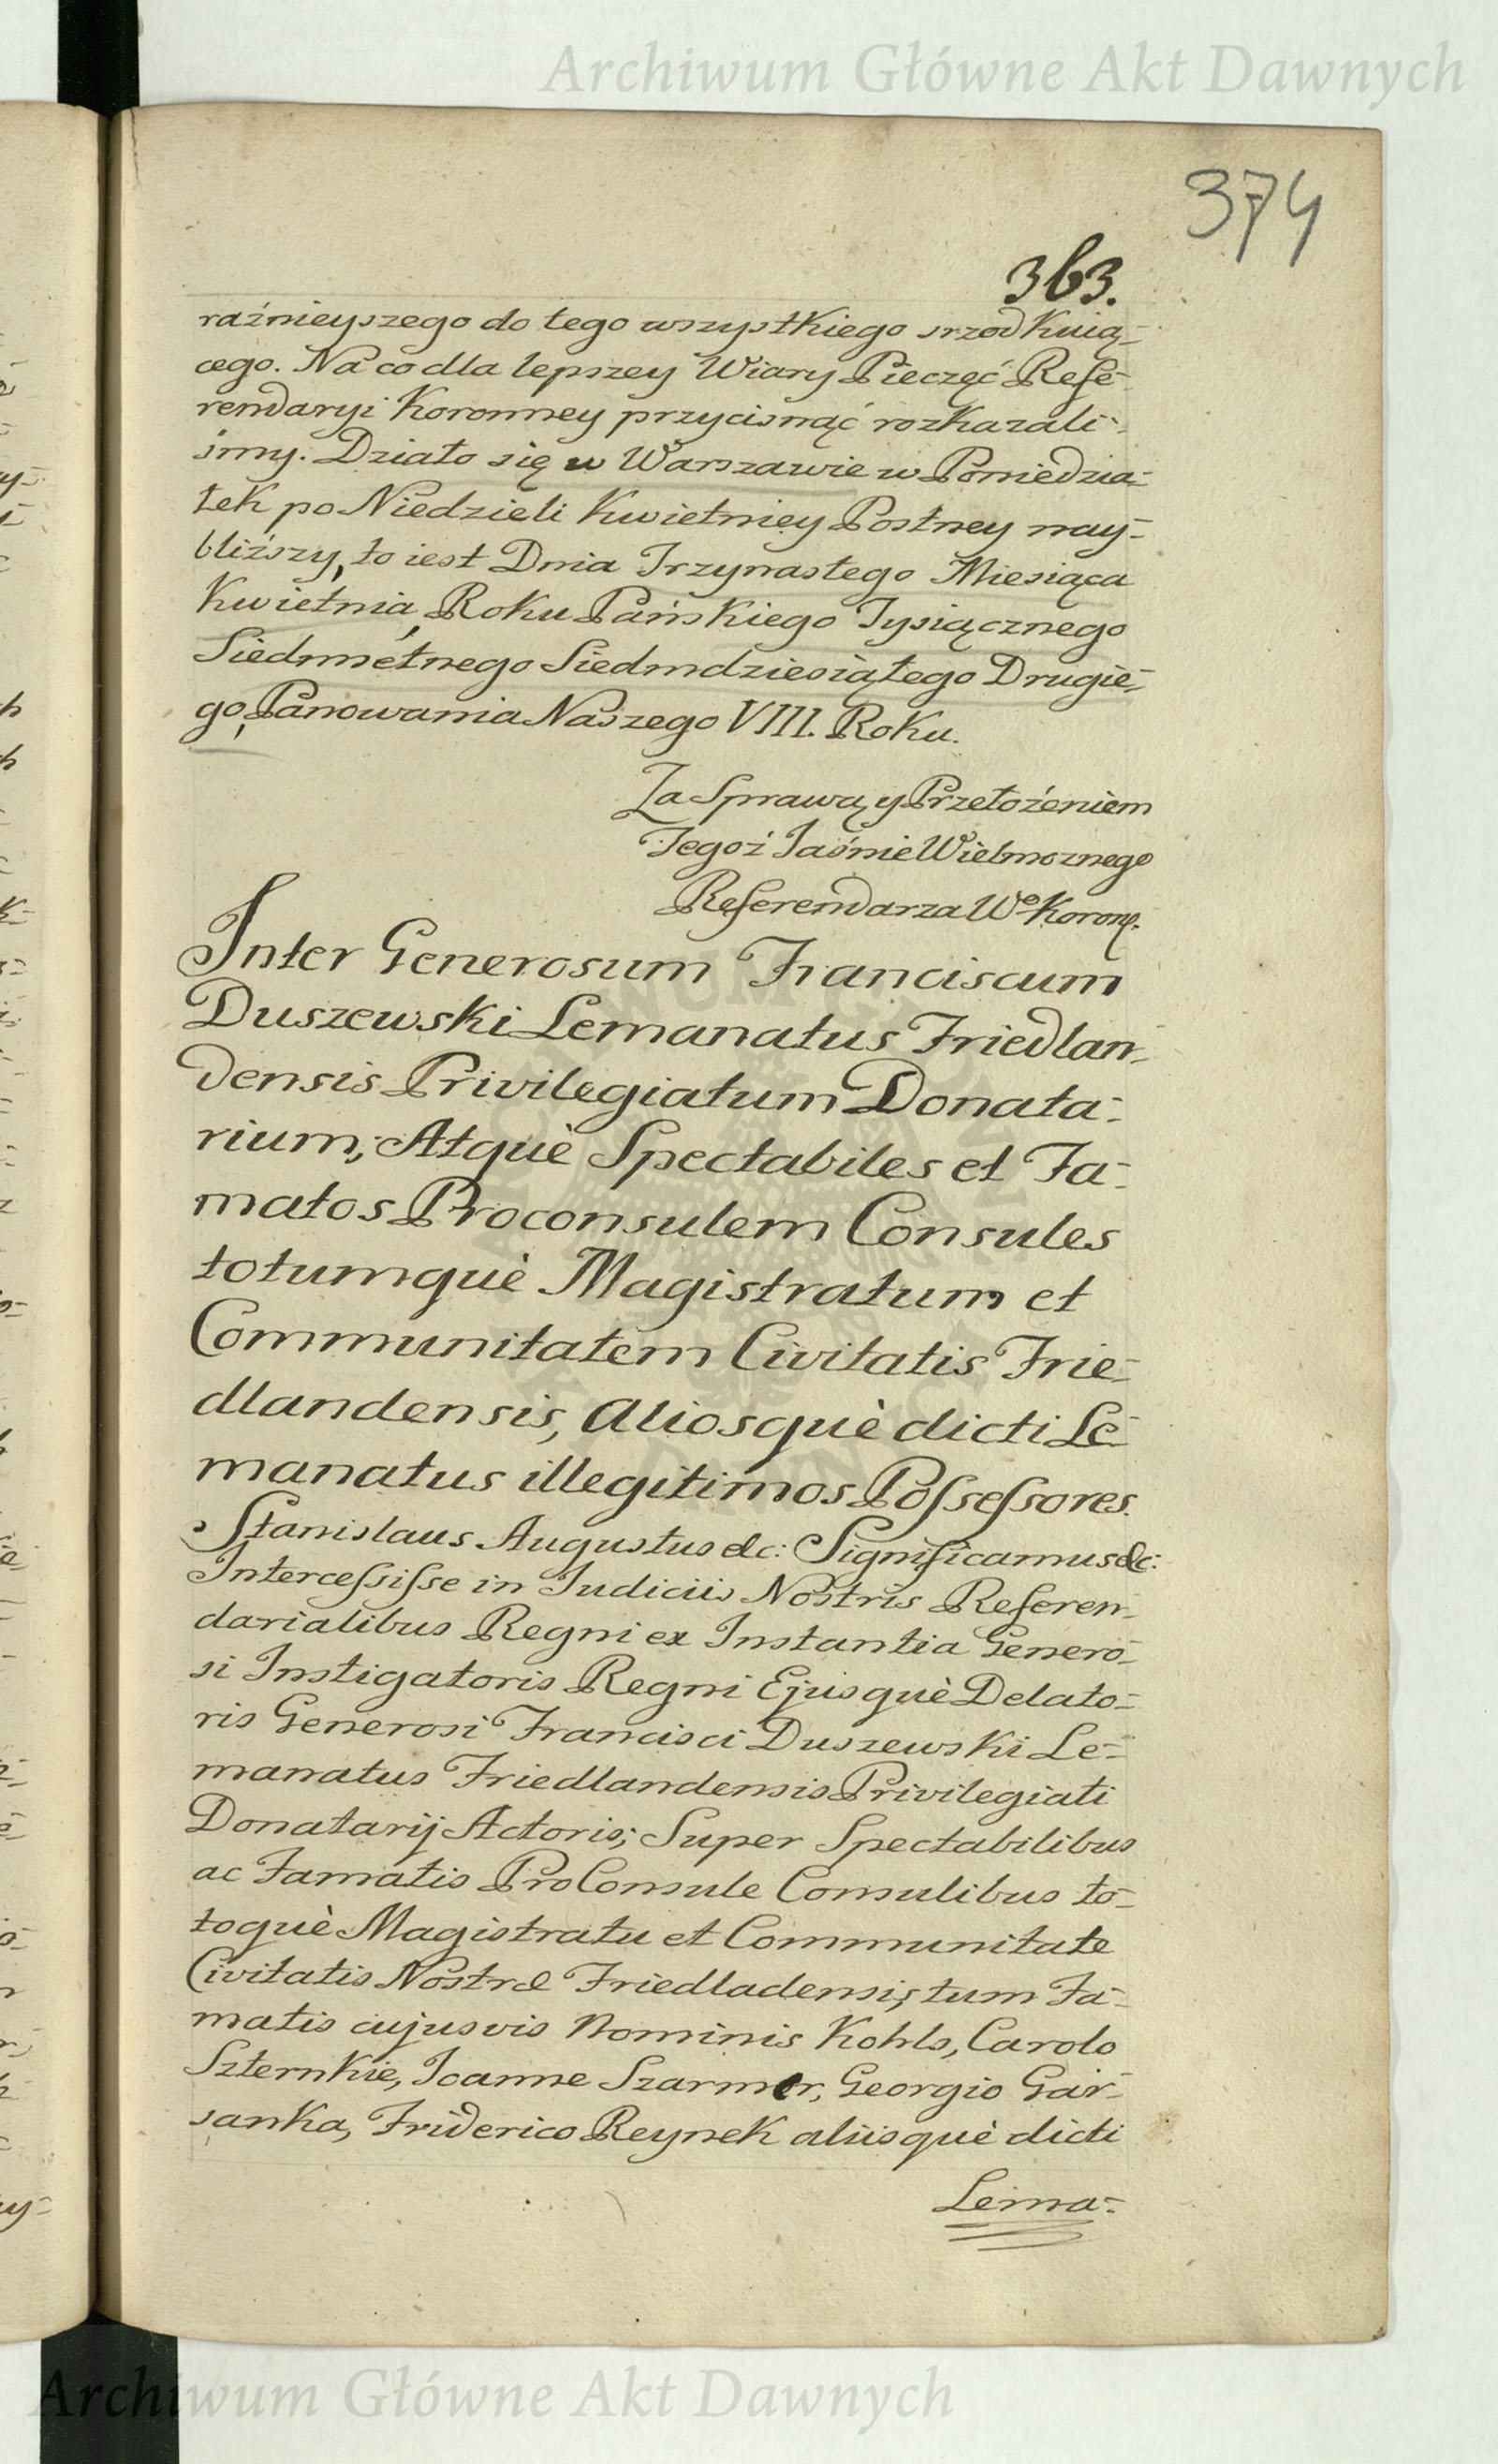 Archiwum Główne Akt Dawnych
374
363.
raźnieyszego do tego wszystkiego srzodkuią-
cego. Na co dla lepszey Wiary Pieczęć Refe-
rendaryi Koronney przycisnąć rozkazali-
śmy. Działo się w Warszawie w Poniedzia-
łek po Niedzieli Kwietniey Postney nay-
bliższy, to iest Dnia Trzynastego Miesiąca
Kwietnia, Roku Pańskiego Tysiącznego
Siedmsetnego Siedmdziesiątego Drugie-
go, Panowania Naszego VIII. Roku.
Za Sprawą y Przełożeniem
Tegoż Jaśnie Wielmoznego
Referendarza Wo Koronn.
Inter Generosum Franciscum
Duszewski Lemanatus Friedlan-
densis Privilegiatum Donata-
rium; Atquè Spectabiles et Fa-
matos Proconsulem Consules
totumquè Magistratum et
Communitatem Civitatis Frie-
dlandensis, Aliosquè dicti Le-
manatus illegitimos Possessores.
Stanislaus Augustus &c: Significamus &c:
Intercessisse in Iudiciis Nostris Referen-
darialibus Regni ex Instantia Genero-
si Instigatoris Regni Ejusquè Delato-
ris Generosi Francisci Duszewski Le-
manatus Friedlandensis Privilegiati
Donatarij Actoris; Super Spectabilibus
ac Famatis ProConsule Consulibus to-
toquè Magistratu et Communitate
Civitatis Nostræ Friedladensis, tum Fa-
matis cujusvis Nominis Kohls, Carolo
Szternkie, Ioanne Szarmer, Georgio Gar-
sanka, Friderico Reynek aliisquè dicti
Lema-
Archiwum Główne Akt Dawnych